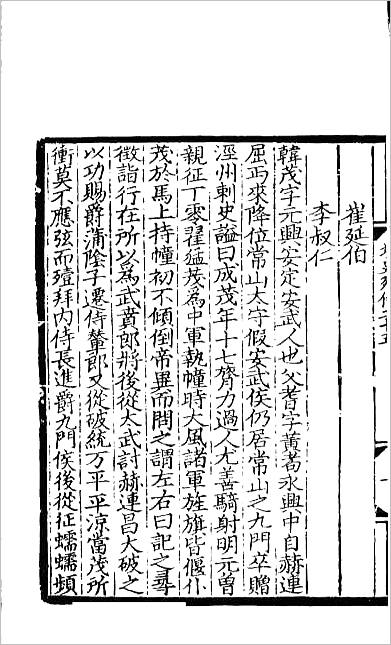 崔延伯
李叔仁
韓茂字元興安定安武人也父耆字黄耇永興中自赫連
屈丐來降位常山太守假安武侯仍居常山之九門卒贈
涇州刺史謚曰成茂年十七膂力過人尤善騎射明元曽
親征丁零翟猛茂為中軍執幢時大風諸軍旌旗皆偃仆
茂於馬上持幢初不傾倒帝異而問之謂左右曰記之尋
徵詣行在所以為武賁郎將後從太武討赫連昌大破之
以功賜爵蒲陰子遷侍輦郎又從破統万平平涼當茂所
衝莫不應弦而殪拜内侍長進爵九門侯後從征蠕蠕頻